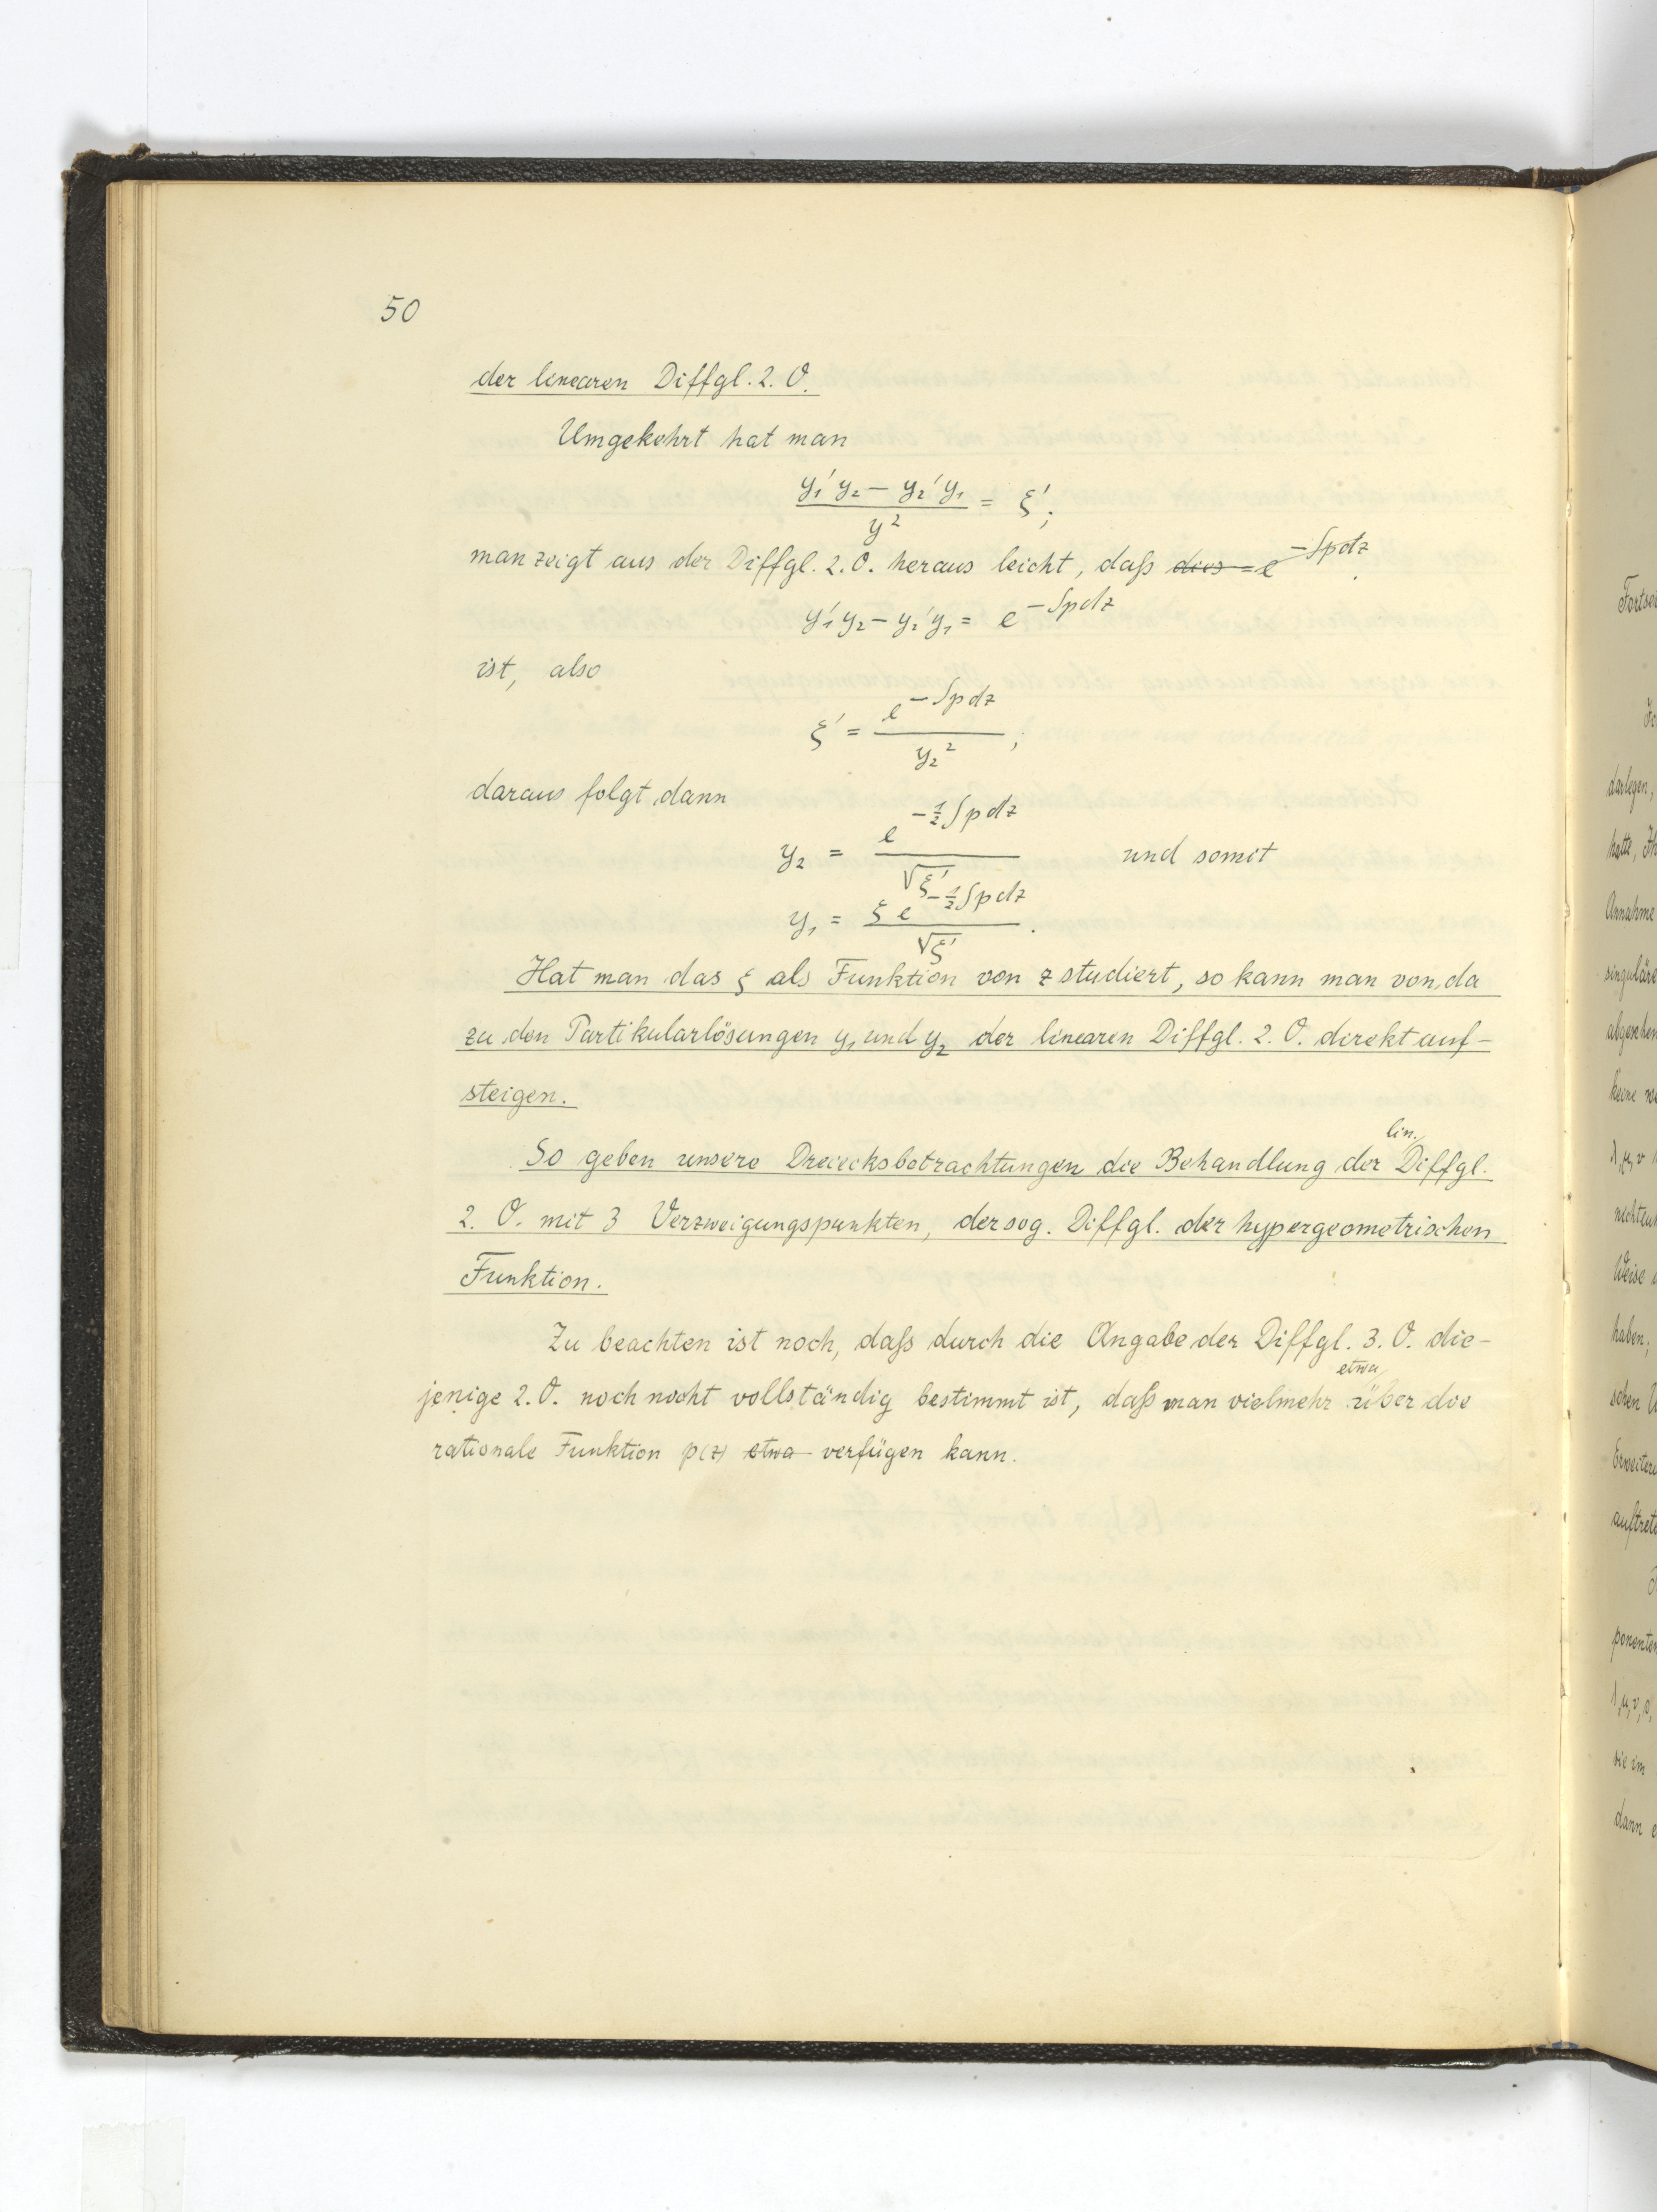 50
der linearen Diffgl. 2. O.
Umgekehrt hat man
(y₁′y₂ − y₂′y₁)/y² = ξ′;
man zeigt aus der Diffgl. 2. O. heraus leicht, daß ~~dies = e^(−∫pdz)~~.
y₁′y₂ − y₂′y₁ = e^(−∫pdz)
ist, also
ξ′ = e^(−∫pdz)/y₂²;
daraus folgt dann
y₂ = e^(−½∫pdz)/√ξ′ und somit
y₁ = ξe^(−½∫pdz)/√ξ′.
Hat man das ξ als Funktion von z studiert, so kann man von da
zu den Partikularlösungen y₁ und y₂ der linearen Diffgl. 2. O. direkt auf-
steigen.
So geben unsere Dreiecksbetrachtungen die Behandlung der lin. Diffgl.
2. O. mit 3 Verzweigungspunkten, der sog. Diffgl. der hypergeometrischen
Funktion.
Zu beachten ist noch, daß durch die Angabe der Diffgl. 3. O. die-
jenige 2. O. noch nicht vollständig bestimmt ist, daß man vielmehr etwa über die
rationale Funktion p(z) ~~etwa~~ verfügen kann.
darlegen,
hatte,
Annahme
abgesehen
keine
Weise
haben;
schen
dann